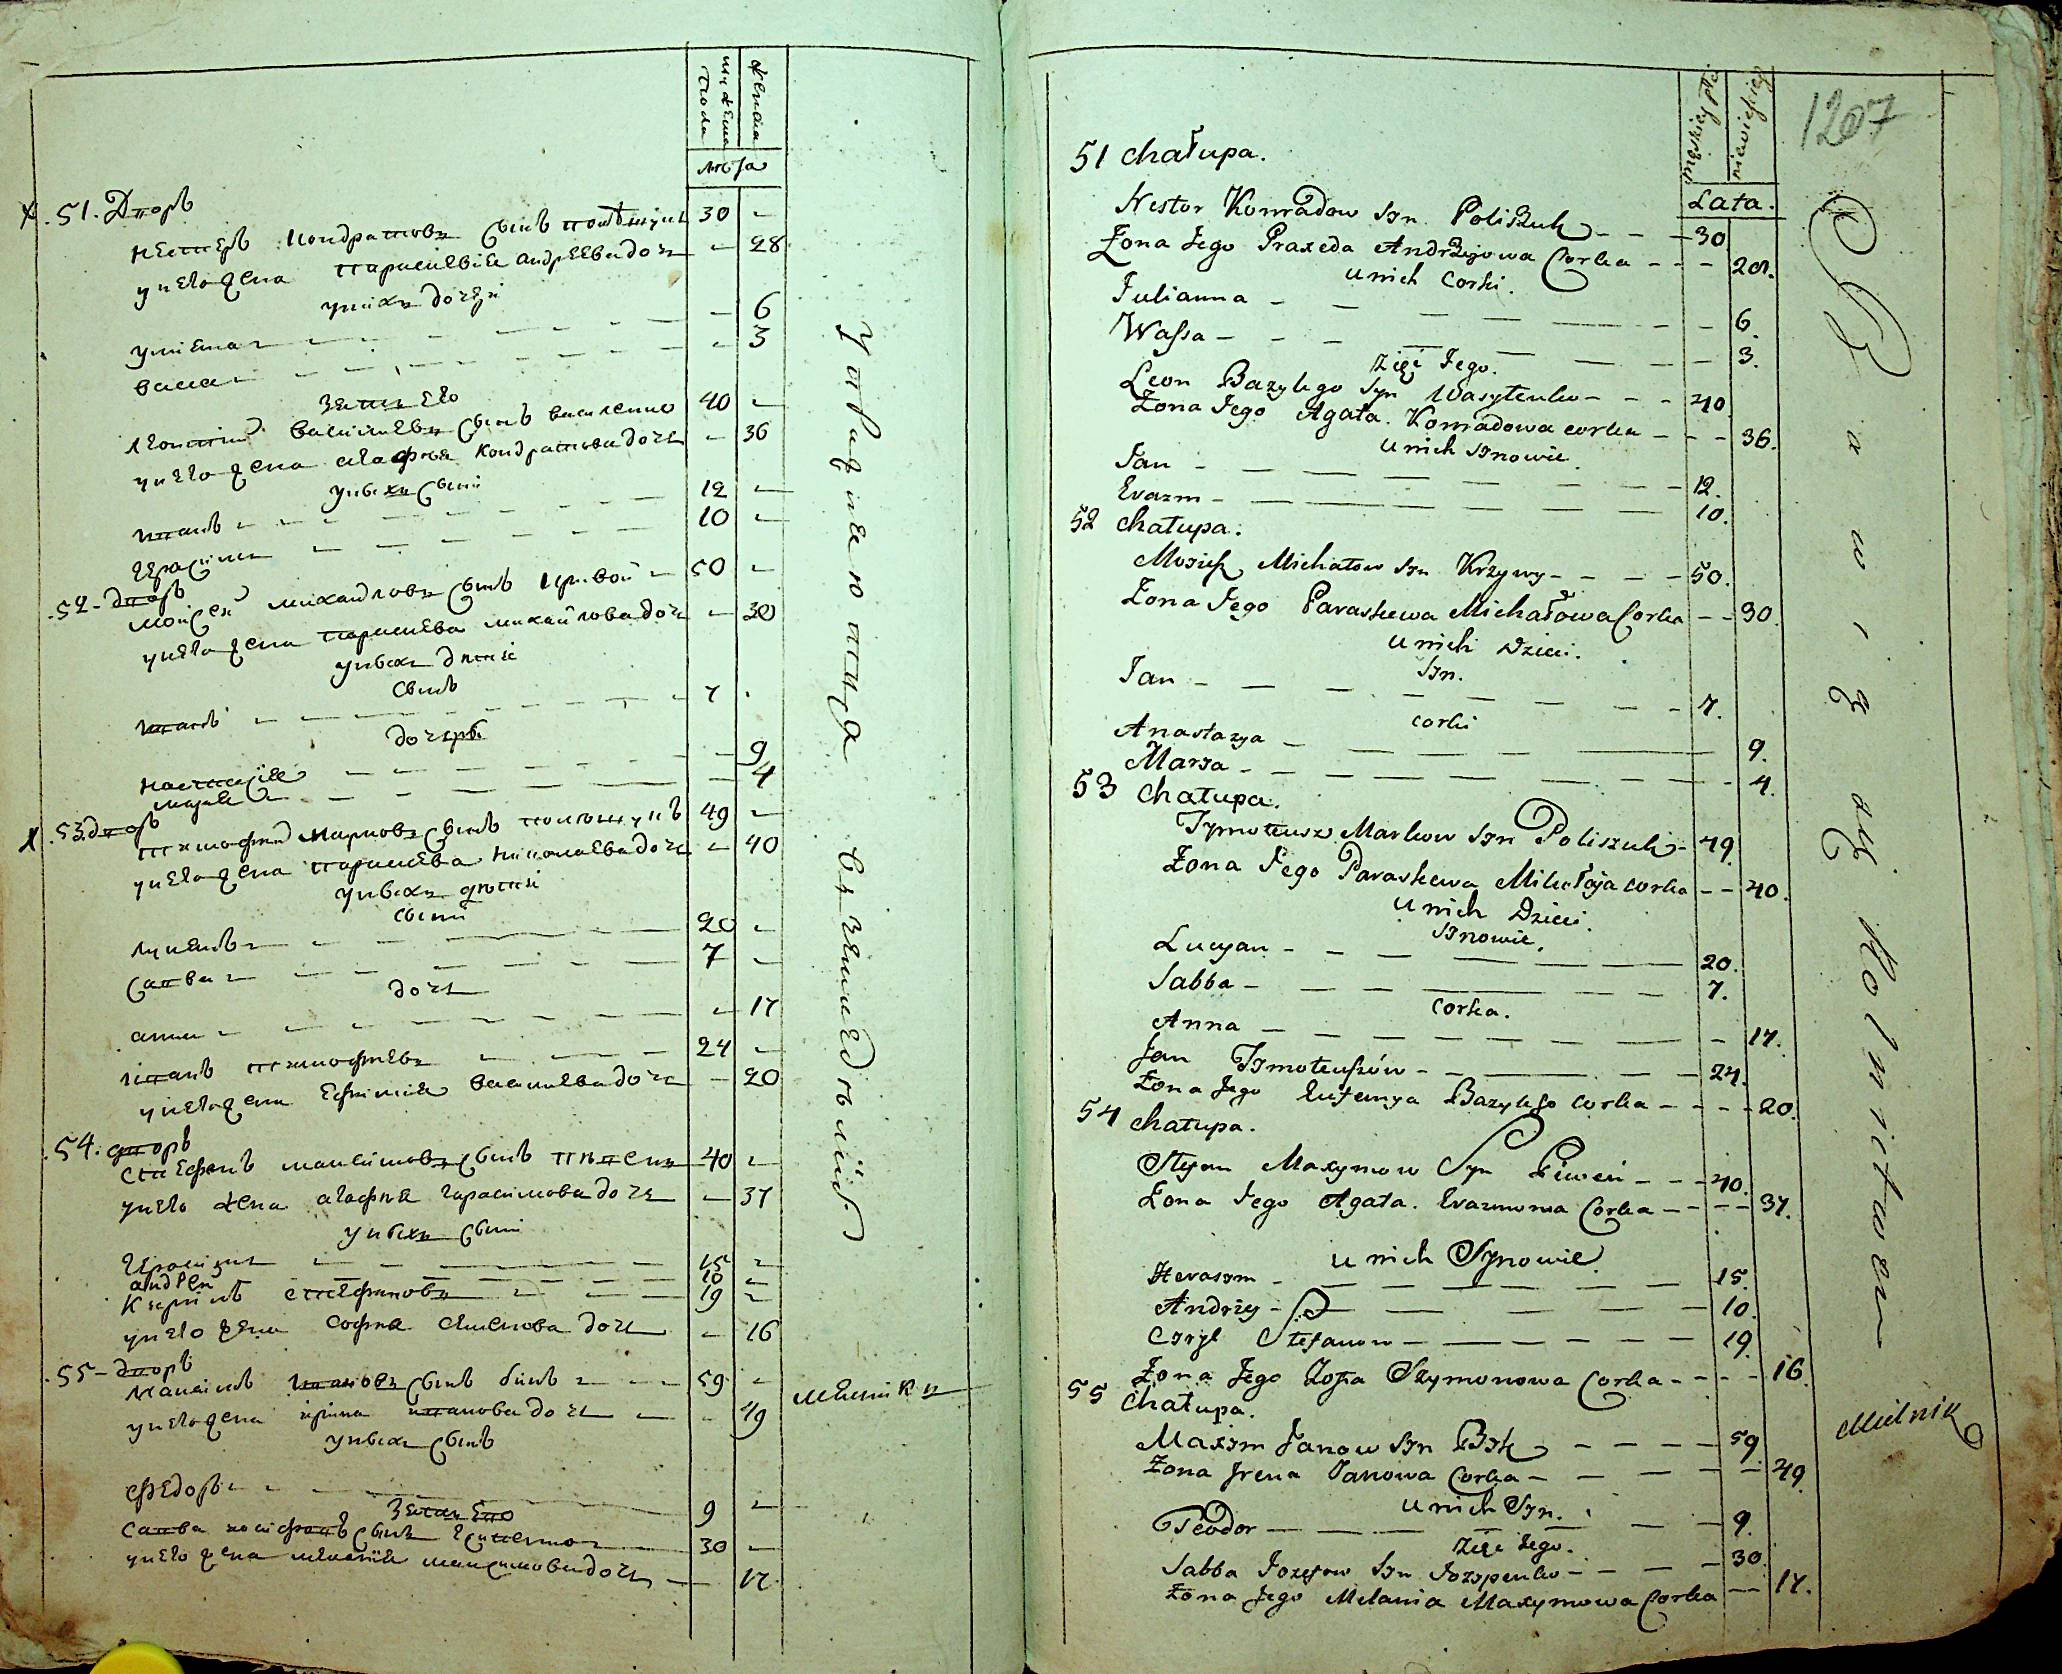 мужеска пола
женска
лѣта
51. Дворъ
Нестеръ Кондратовъ сынъ Полѣщукъ 30 -
у него жена Парасковія Андреева дочь - 28
у нихъ дочери
Уліяна - 6
Васса - 3
Зять его
Леонтій Василіевъ сынъ Василенко 40 -
у него жена Агафья Кондратова дочь - 36
у нихъ сыны
Иванъ 12 -
Герасимъ 10 -
52 - Дворъ
Мойсей Михайловъ сынъ Кривой 50 -
у него жена Парасκева Михайлова дочь - 30
у нихъ дѣти
сынъ
Иванъ 7
дочери
Настасія - 9
Марія - 4
53 дворъ
Тимофей Марковъ сынъ Полѣщукъ 49 -
у него жена Параскева Николаева дочь - 40
у нихъ дѣти
сыны
Лукянъ 20 -
Савва 7 -
дочь
Анна - 17
Иванъ Тимофѣевъ 24 -
у него жена Ефимія Василіева дочь - 20
54. дворъ
Стефанъ Максимовъ сынъ Пѣвень 40 -
у него жена Агафья Гарасимова дочь - 37
у нихъ сыны
Герасимъ 15 -
Андрей 10 -
Кирилъ Стефановъ 19 -
у него жена Софья Семенова дочь - 16
55 - дворъ
Максимъ Ивановъ сынъ Бикъ 59 -
у него жена Ирина Иванова дочь - 49
у нихъ сынъ
Федоръ 9 -
Зять его
Савва Иосифовъ сынъ 30 -
у него жена Меланія Максимова дочь - 17
Упражняются въ земледѣліи
Мельникъ
1207
męskiey płci
niewieściey
Lata.
51 chałupa.
Nestor Konradow Syn Poliszuk - - - 30
Żona Jego Praxeda Andrzejowa Corka - - - 28.
u nich Corki.
Julianna - 6.
Wassa - 3.
Zięć Jego.
Leon Bazylego Syn Wasylenko - - - 40
Żona Jego Agata. Konradowa corka - - - 36.
u nich Synowie.
Jan - 12.
Erazm - 10.
52 chałupa.
Mosiey Michałow Syn Krzywy - - - - 50.
Żona Jego Paraskewa Michałowa Corka - - 30.
u nich Dzieci.
Syn.
Jan - 7.
corki
Anastazya - 9.
Marya - 4.
53 chałupa.
Tymoteusz Markow Syn Poliszuk - 49.
Żona Jego Paraskewa Mikołaja corka - - 40.
u nich Dzieci.
Synowie.
Lucyan - 20.
Sabba - 7.
Corka.
Anna - 17.
Jan Tymoteuszów - 24.
Żona Jego Eufemya Bazylego corka - - - - 20.
54 chałupa.
Stefan Maxymow Syn Piweń - - - 40.
Żona Jego Agata. Erazmowa Corka - - - - 37.
u nich Synowie.
Herasym - 15.
Andrzy - 10.
Cyryl Stefanow - 19.
Żona Jego Zofia Szymonowa Corka - - - - 16.
55 chałupa.
Maxym Janow Syn Byk - - - - 59.
Żona Irena Janowa Corka - 49.
u nich Syn.
Teodor - 9.
Zięć Jego.
Sabba Jozefow Syn Jozypenko - - - - 30.
Żona Jego Melania Maxymowa Corka - - 17.
Bawią się Rolnictwem
Mielnik